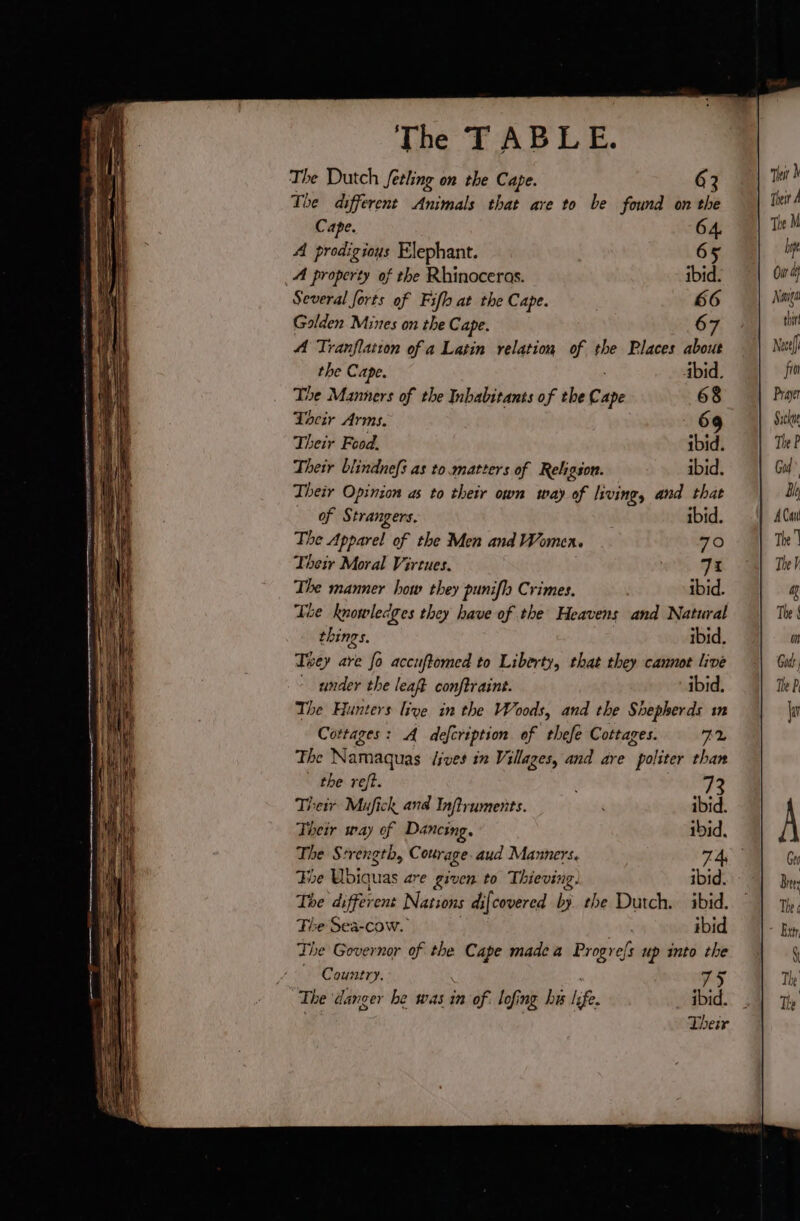 The TABLE.
The Dutch ſetling on the Cape. 63
The different Animals that are to be found on the
Cape. 64
A prodigious Elephant. 65
A property of the Rhinoceros. ibid.
Several ſorts of Fiſh at the Cape. 66
Golden Mines on the Cape. 67
A Tranſlation of a Latin relation of the Places about
the Cape. ibid.
The Manners of the Inhabitants of the Cape 68
Their Arms. 69
Their Food. ibid.
Their blindneſs as to matters of Religion. ibid.
Their Opinion as to their own way of living, and that
of Strangers. ibid.
The Apparel of the Men and Women. 70
Their Moral Virtues. 71
The manner how they puniſh Crimes. ibid.
The knowledges they have of the Heavens and Natural
things. ibid.
They are ſo accuſtomed to Liberty, that they cannot live
under the leaſt conſtraint. ibid.
The Hunters live in the Woods, and the Shepherds in
Cottages: A deſcription of theſe Cottages. 72
The Namaquas lives in Villages, and are politer than
the reſt. 73
Their Muſick and Inſtruments. ibid.
Their way of Dancing. ibid.
The Strength, Courage aud Manners. 74
The Ubiquas are given to Thieving. ibid.
The different Nations diſcovered by the Dutch. ibid.
The Sea-cow. ibid
The Governor of the Cape made a Progreſs up into the
Country. 75
The danger he was in of loſing his life. ibid.
Their